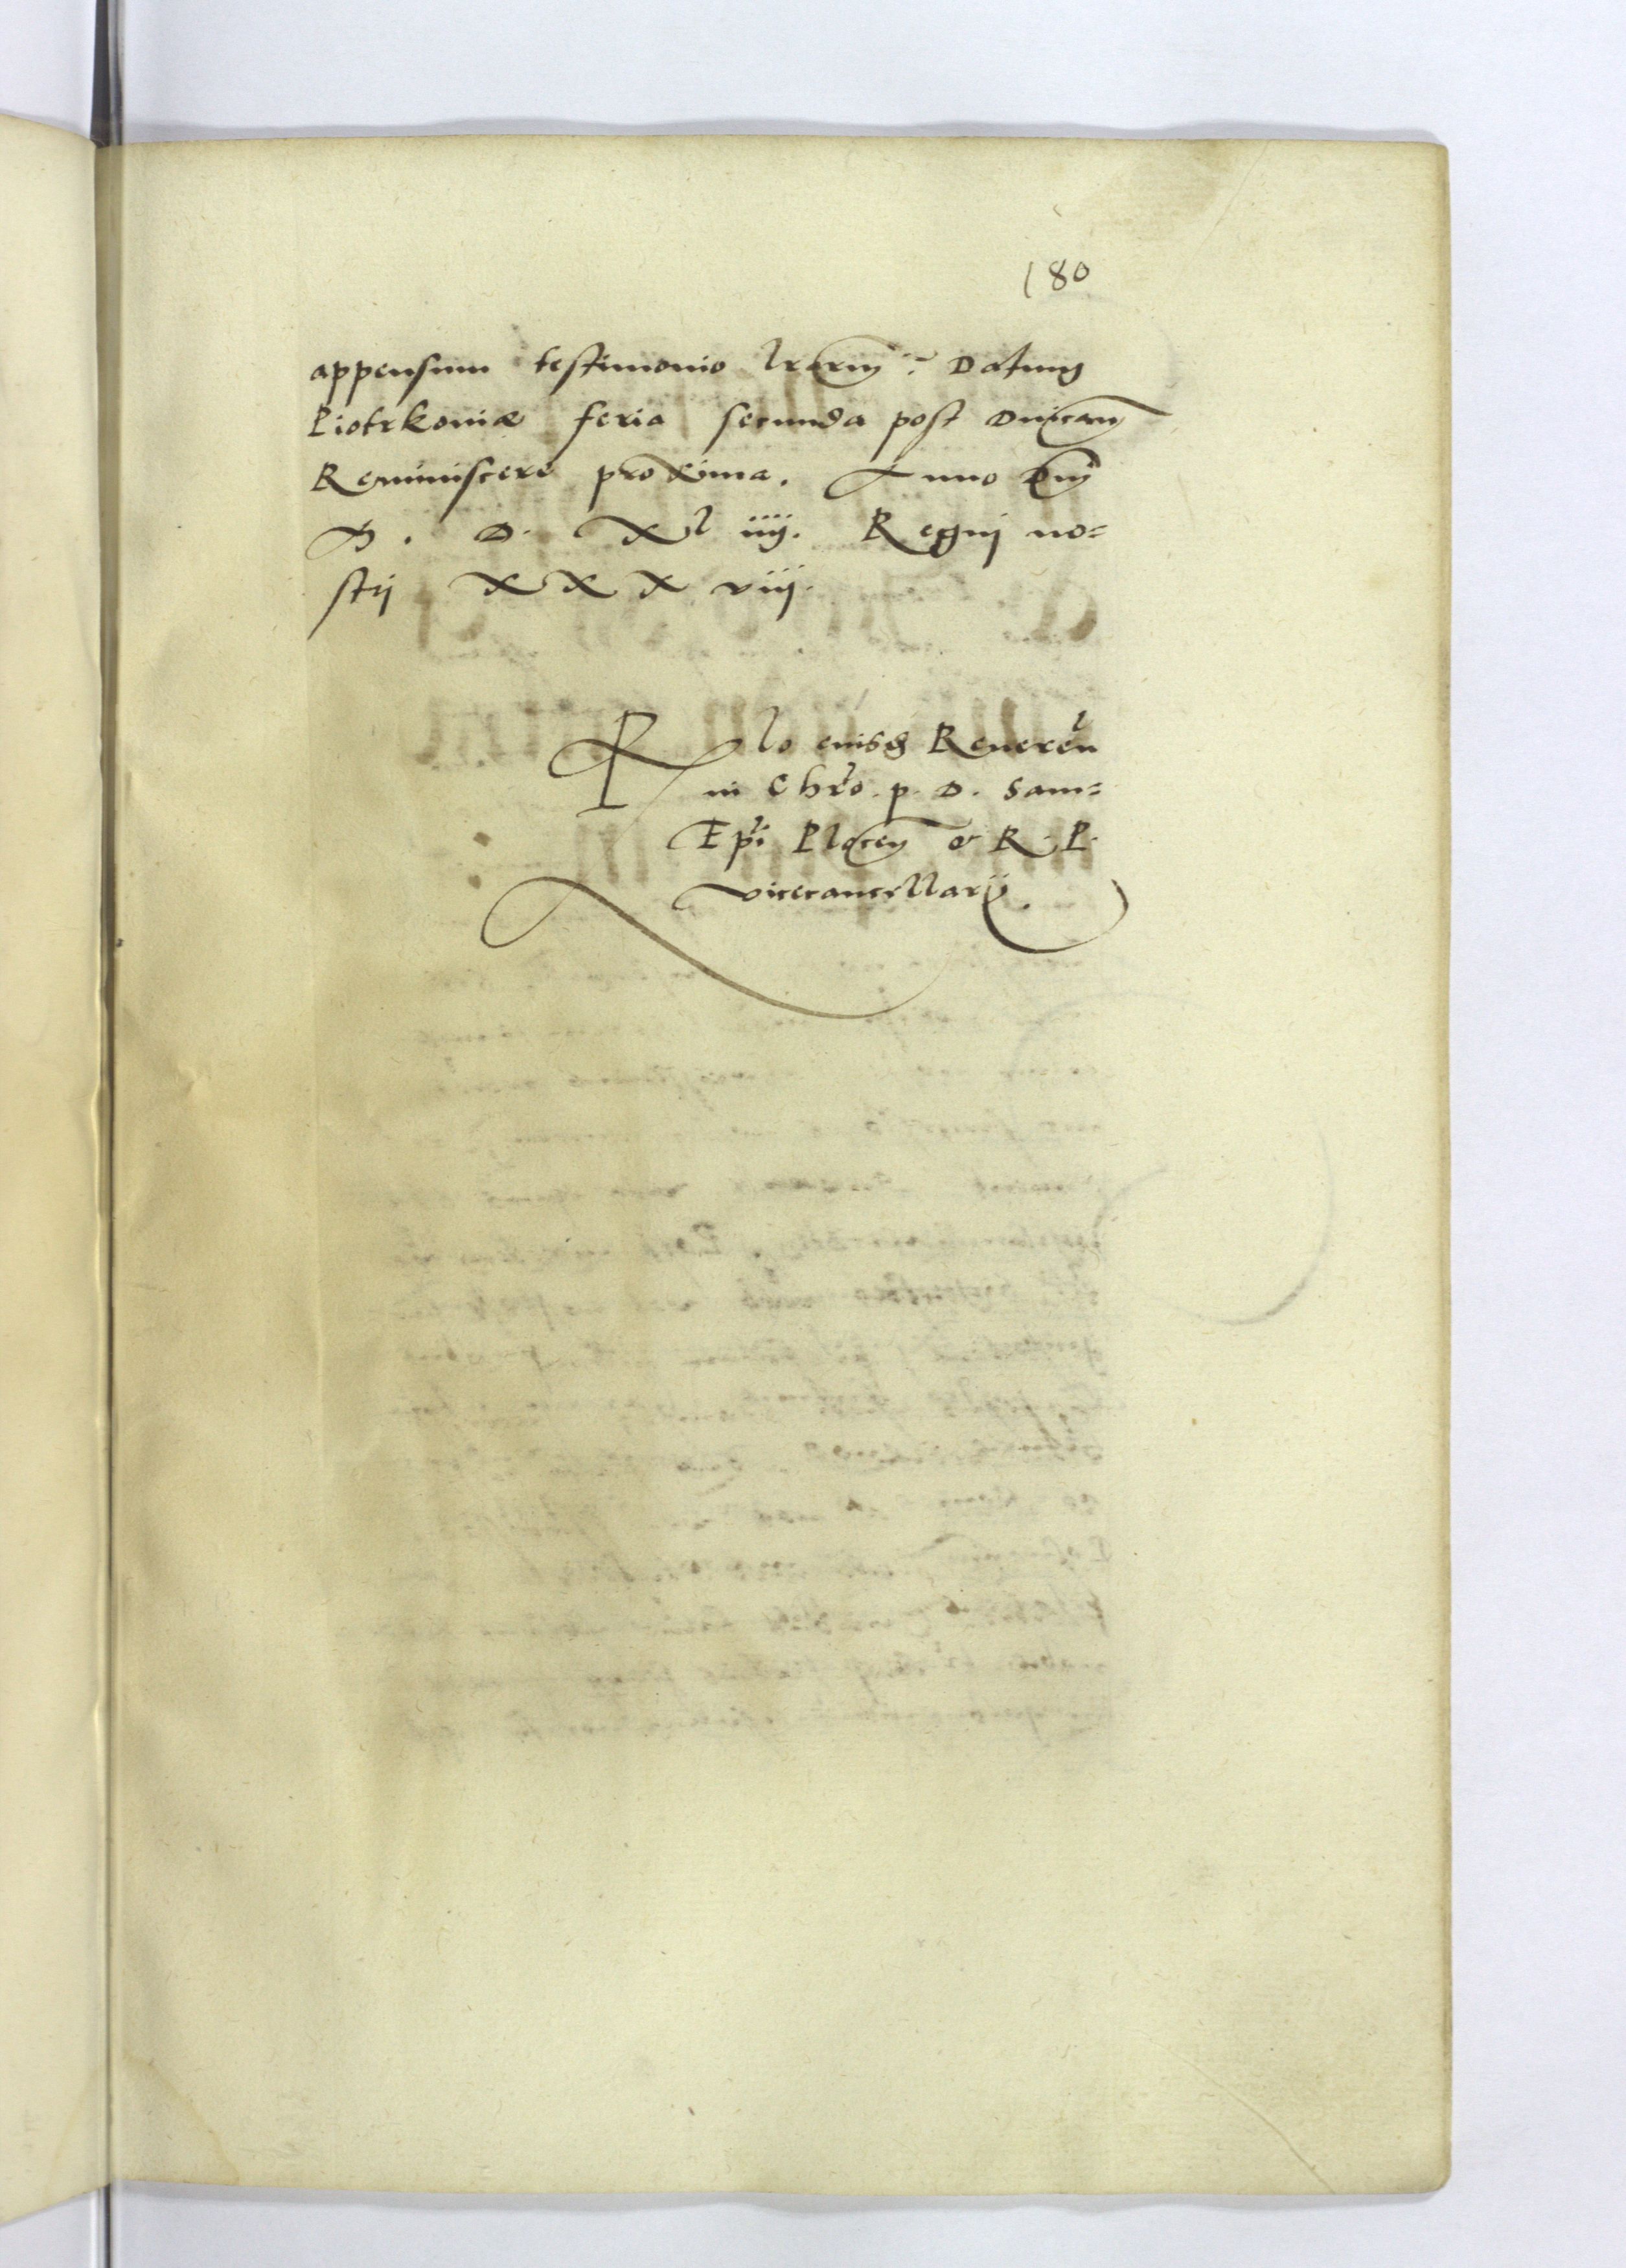 180
appensum testimonio lrarum. Datum
Piotrkoniæ feria secunda post Dnicam
Reminiscere proxima. Anno Dni
M. D. XL iiij. Regni no=
strj XXX viij.
Rlo eiusd Reveren
in Chro. p. D. Sam=
Epi Plocen & R. P.
vicecancellarij.